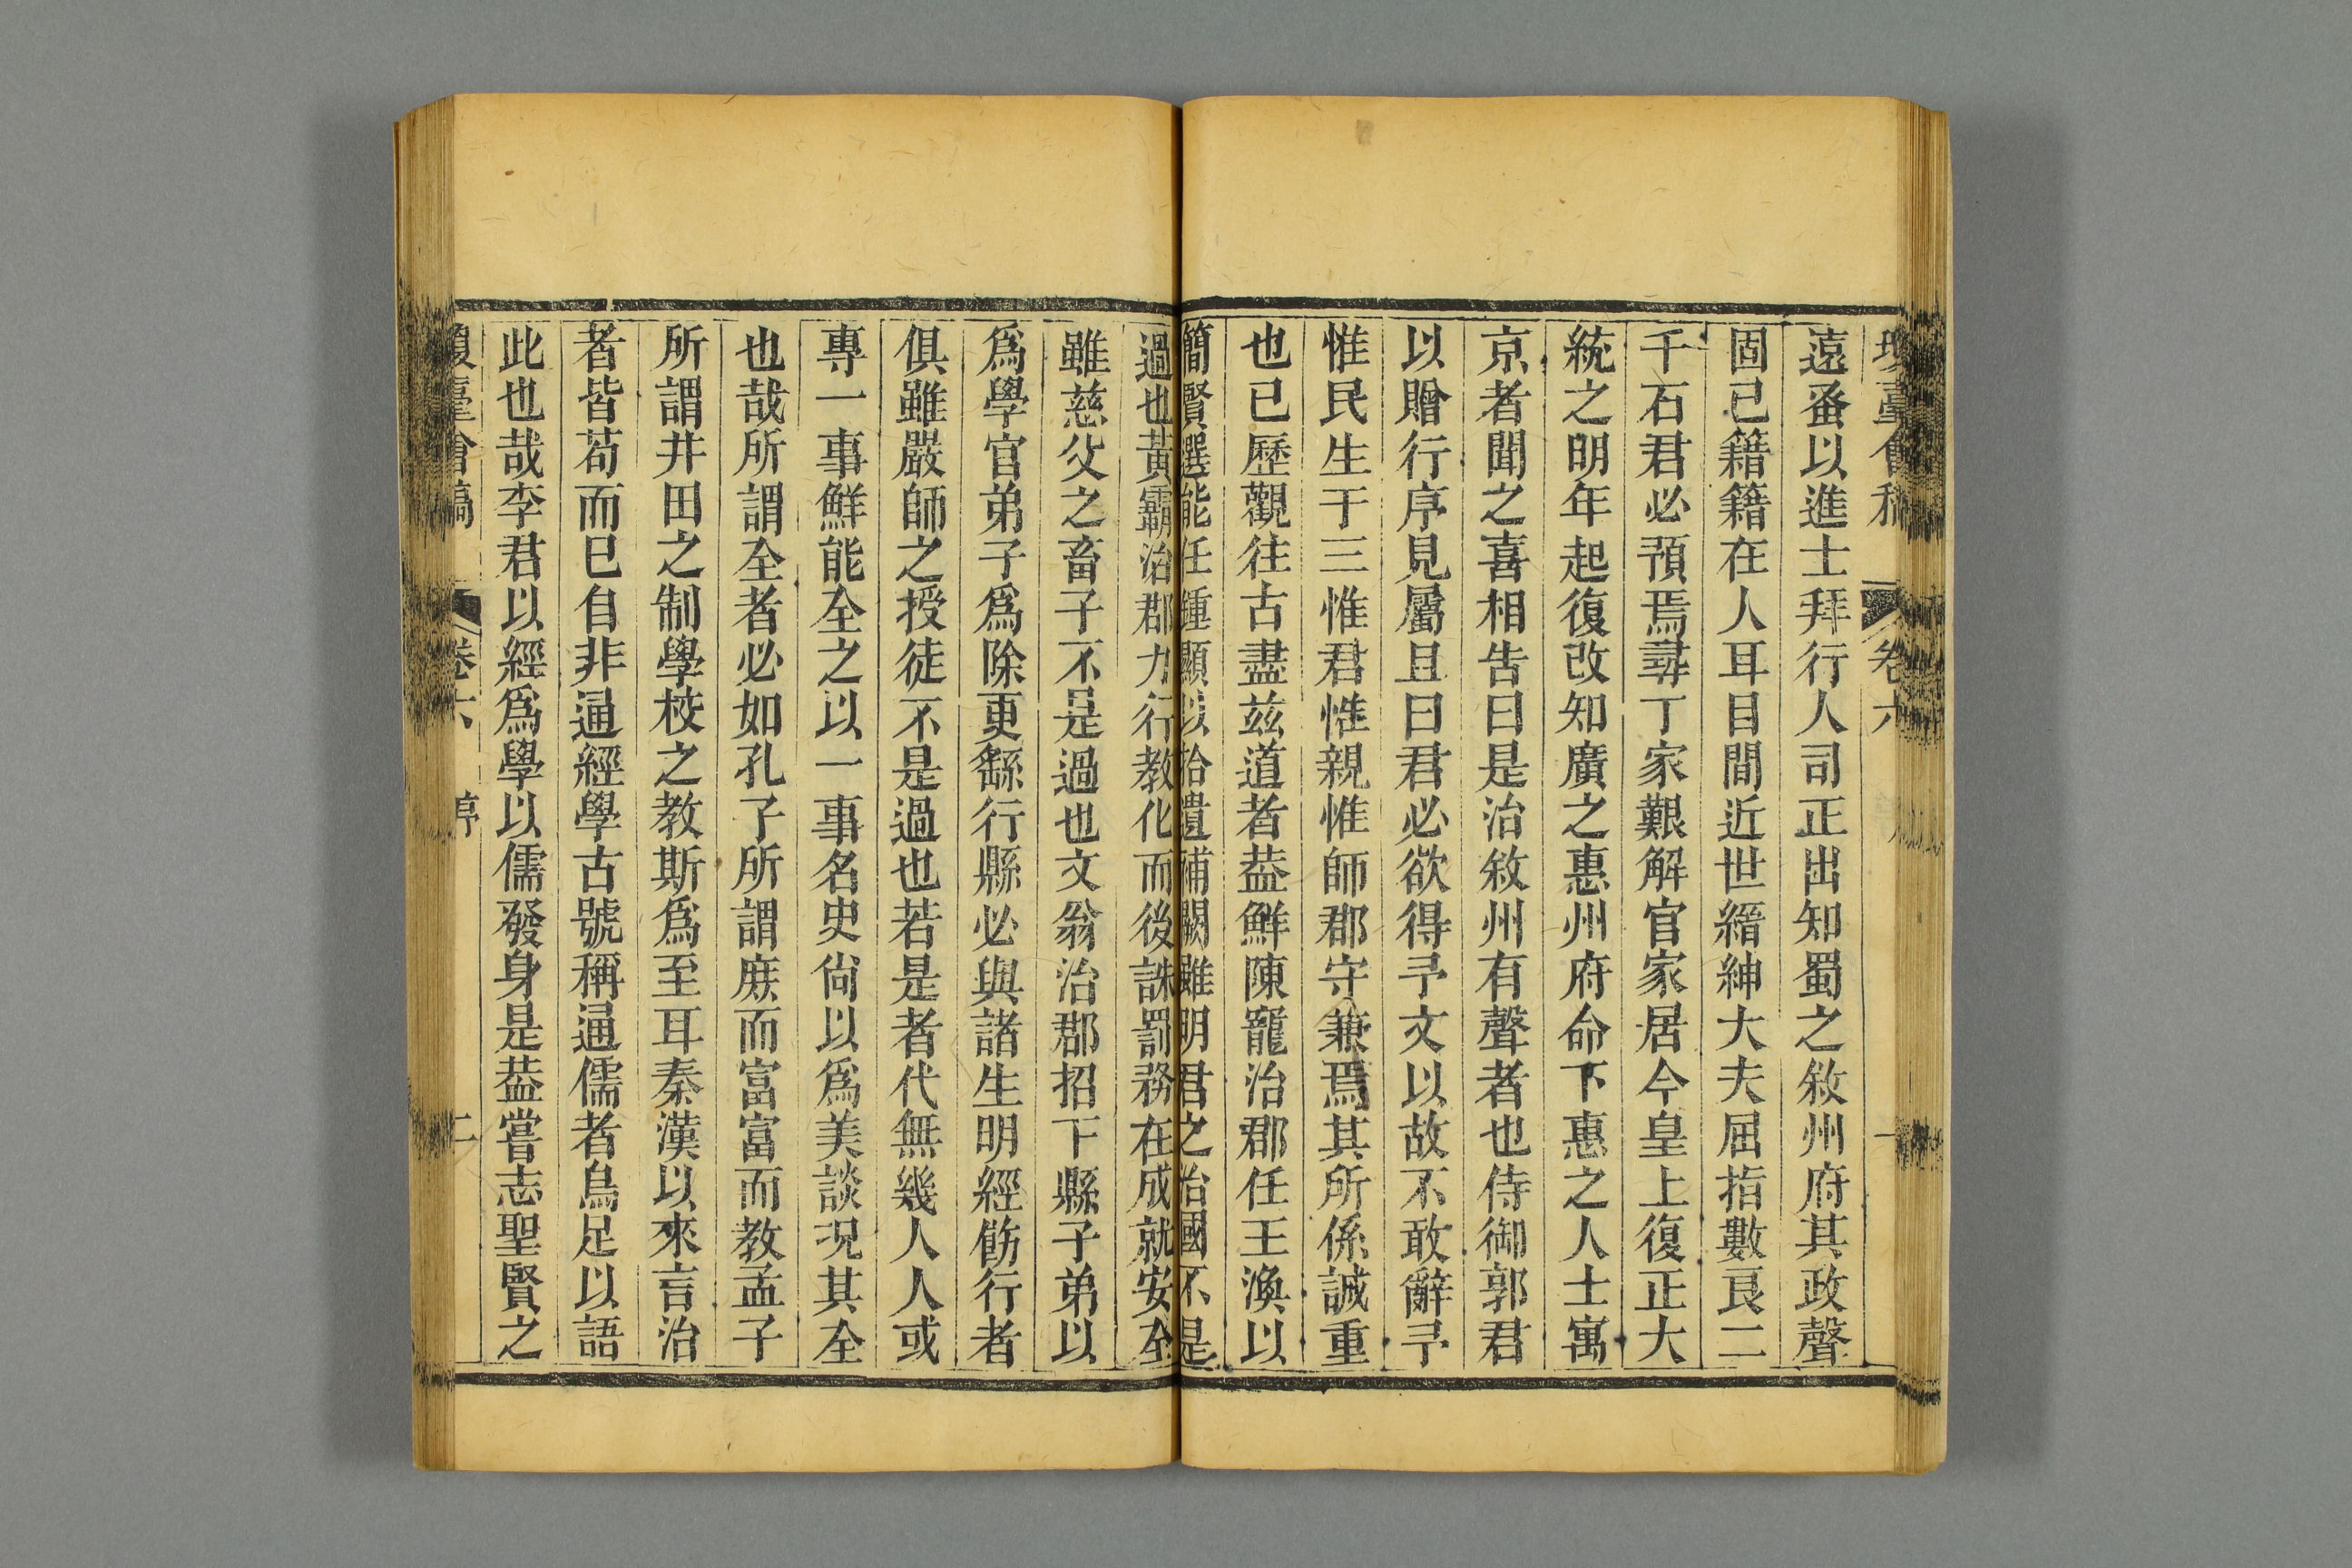 瓊臺會稿 卷六 一
遠蚤以進士拜行人司正出知蜀之敘州府其政聲
固已籍籍在人耳目間近世縉紳大夫屈指數良二
千石君必預焉尋丁家艱解官家居今皇上復正大
統之明年起復改知廣之惠州府命下惠之人士寓
京者聞之喜相告曰是治敘州有聲者也侍御郭君
以贈行序見屬且曰君必欲得予文以故不敢辭予
惟民生于三惟君惟親惟師郡守兼焉其所係誠重
也已歷觀往古盡茲道者葢鮮陳寵治郡任王渙以
簡賢選能任鍾顯以拾遺補闕雖明君之治國不是
過也黃霸治郡力行教化而後誅罰務在成就安全
雖慈父之畜子不是過也文翁治郡招下縣子弟以
爲學官弟子爲除更繇行縣必與諸生明經飭行者
俱雖嚴師之授徒不是過也若是者代無幾人人或
專一事鮮能全之以一事名史尙以爲美談况其全
也哉所謂全者必如孔子所謂庶而富富而教孟子
所謂井田之制學校之教斯爲至耳秦漢以來言治
者皆苟而已自非通經學古號稱通儒者烏足以語
此也哉李君以經爲學以儒發身是葢嘗志聖賢之
瓊臺會稿 卷六 序 二